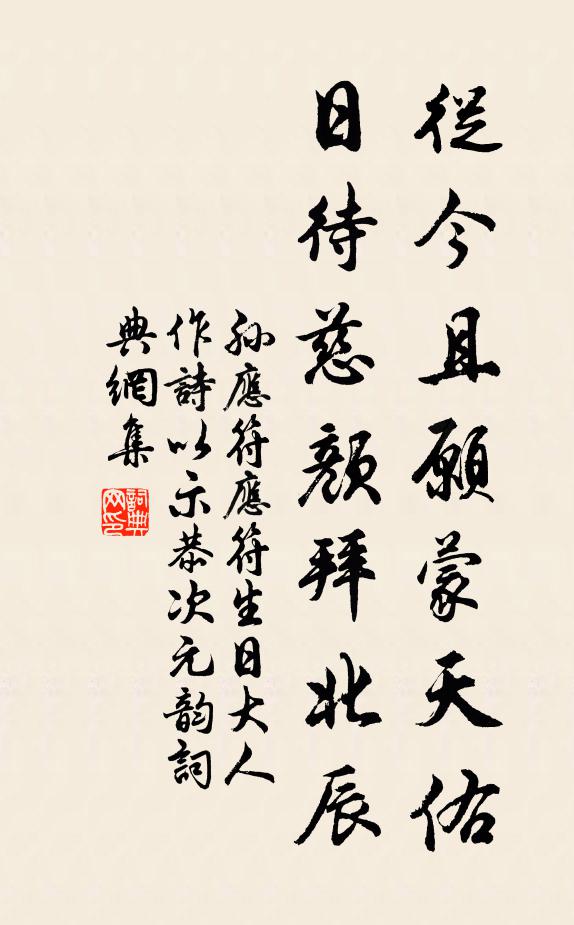 從今且願蒙天佑
日待慈顏拜北辰
孫應符應符生日大人
作詩以示恭次元韵詞
典網集
詞典网印